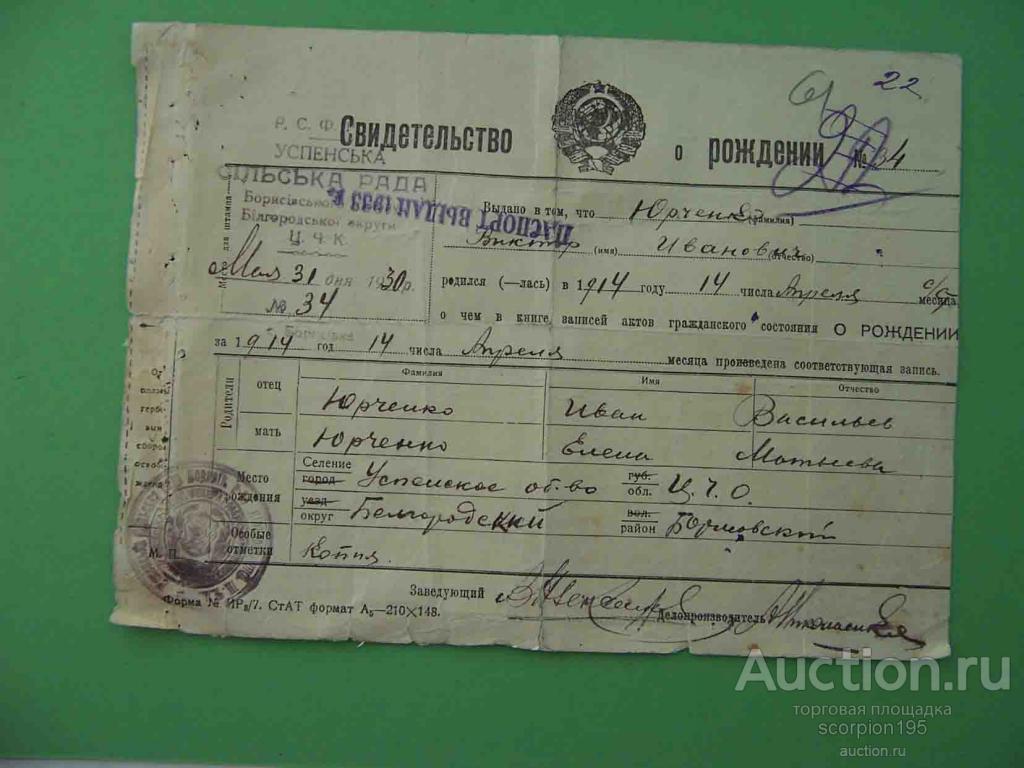 22
Р. С. Ф.
УСПЕНСЬКА
СІЛЬСЬКА РАДА
Борисівського
Білгородської округи
Ц. Ч. К.
Мая 31 дня 1930 г.
№ 34
Борисівка
Свидетельство о рождении № 34
ПАСПОРТ ВЫДАН 1933 г.
Выдано в том, что Юрченко (фамилия)
Виктор (имя) Иванович (отчество)
родился (—лась) в 1914 году 14 числа Апреля с/г месяца
о чем в книге записей актов гражданского состояния О РОЖДЕНИИ
за 1914 год 14 числа Апреля месяца произведена соответствующая запись.
Родители
Фамилия Имя Отчество
отец Юрченко Иван Васильев
мать Юрченко Елена Матвеева
Место рождения
Селение город Успенское об-во губ. обл. Ц.Ч.О.
уезд округ Белгородский вол. район Борисовский
Особые отметки Копия
М. П.
Заведующий
Делопроизводитель
Форма № ИР₈/7. СтАТ формат А₅—210×148.
Auction.ru
торговая площадка
scorpion195
auction.ru